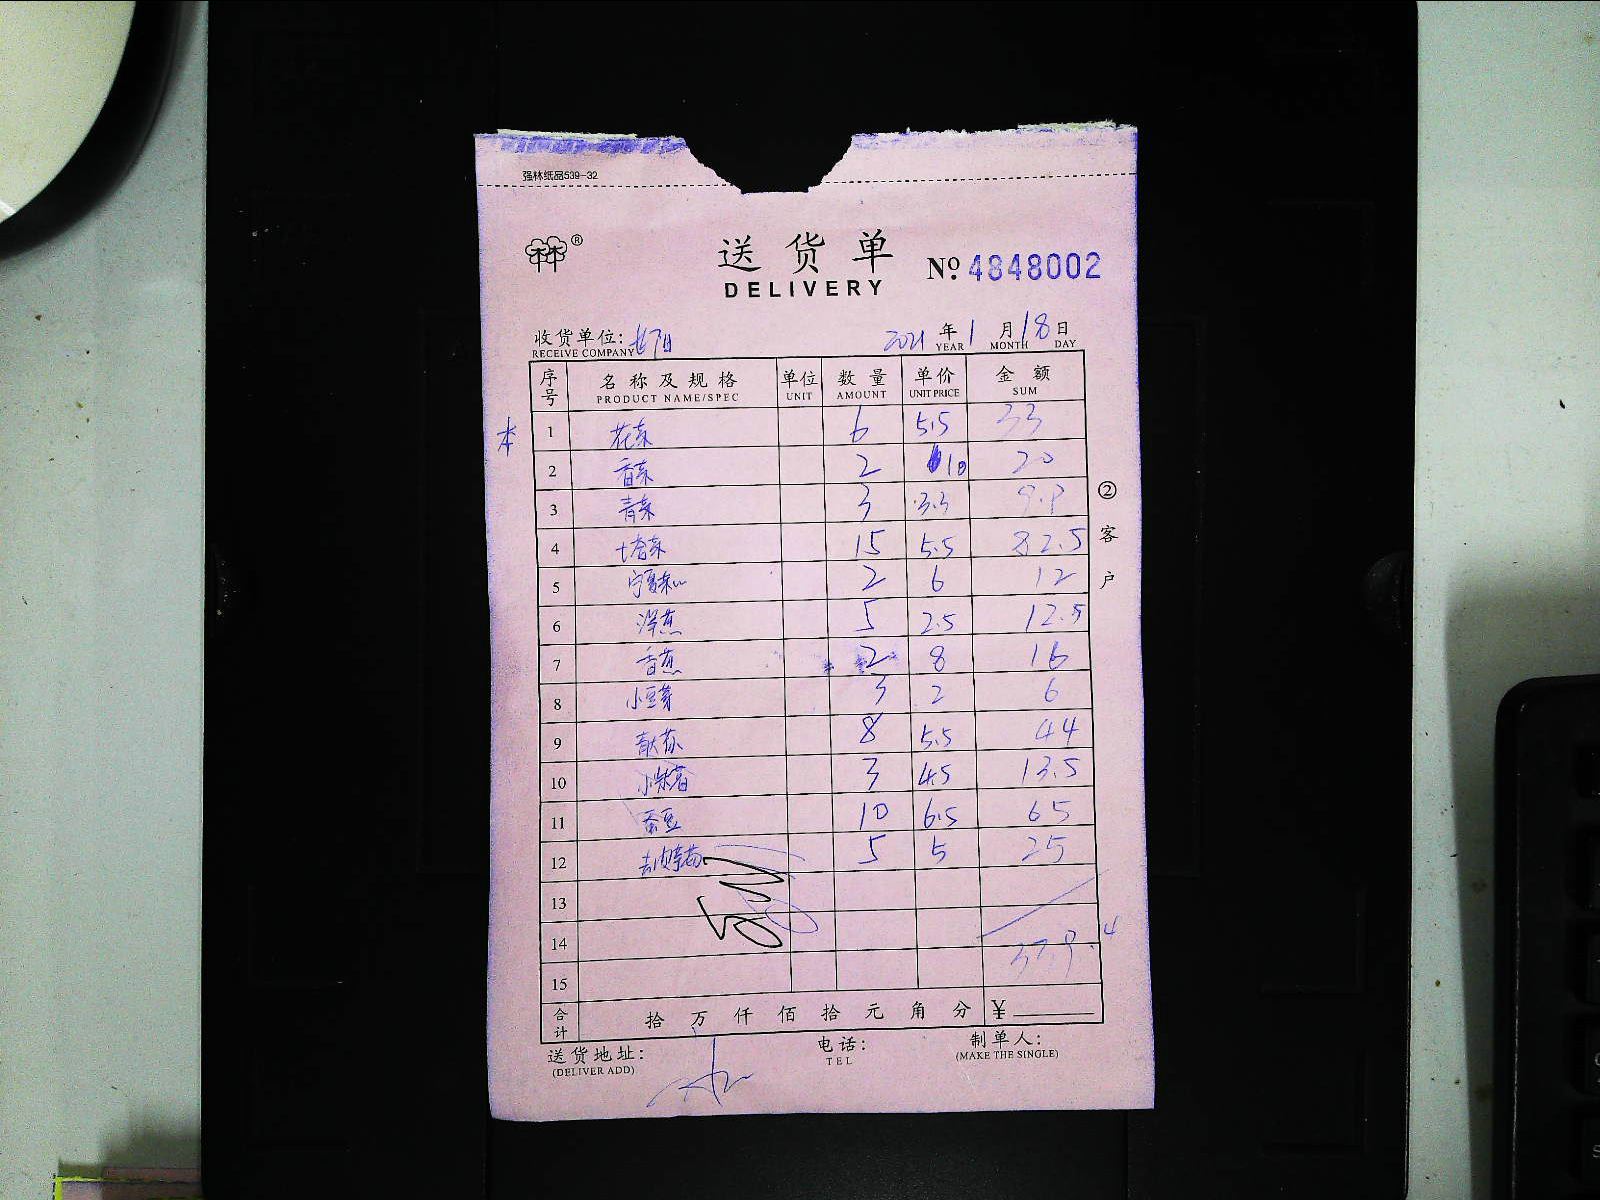 强林纸品539-32
林林 ®
送货单
DELIVERY
№ 4848002
收货单位:
RECEIVE COMPANY
2021 年 1 月 18 日
YEAR MONTH DAY
序号 名称及规格 单位 数量 单价 金额
PRODUCT NAME/SPEC UNIT AMOUNT UNIT PRICE SUM
1 花菜 6 5.5 33
2 香菜 2 10 20
3 青菜 3 3.3 9.9
4 15 5.5 82.5
5 宁夏菜心 2 6 12
6 2.5 5 12.5
7 香蕉 2 8 16
8 小豆芽 3 2 6
9 8 5.5 44
10 小米椒 3 4.5 13.5
11 蚕豆 10 6.5 65
12 5 5 25
13
14
15
合计 拾 万 仟 佰 拾 元 角 分 ¥
② 客户
送货地址:
(DELIVER ADD)
电话:
TEL
制单人:
(MAKE THE SINGLE)